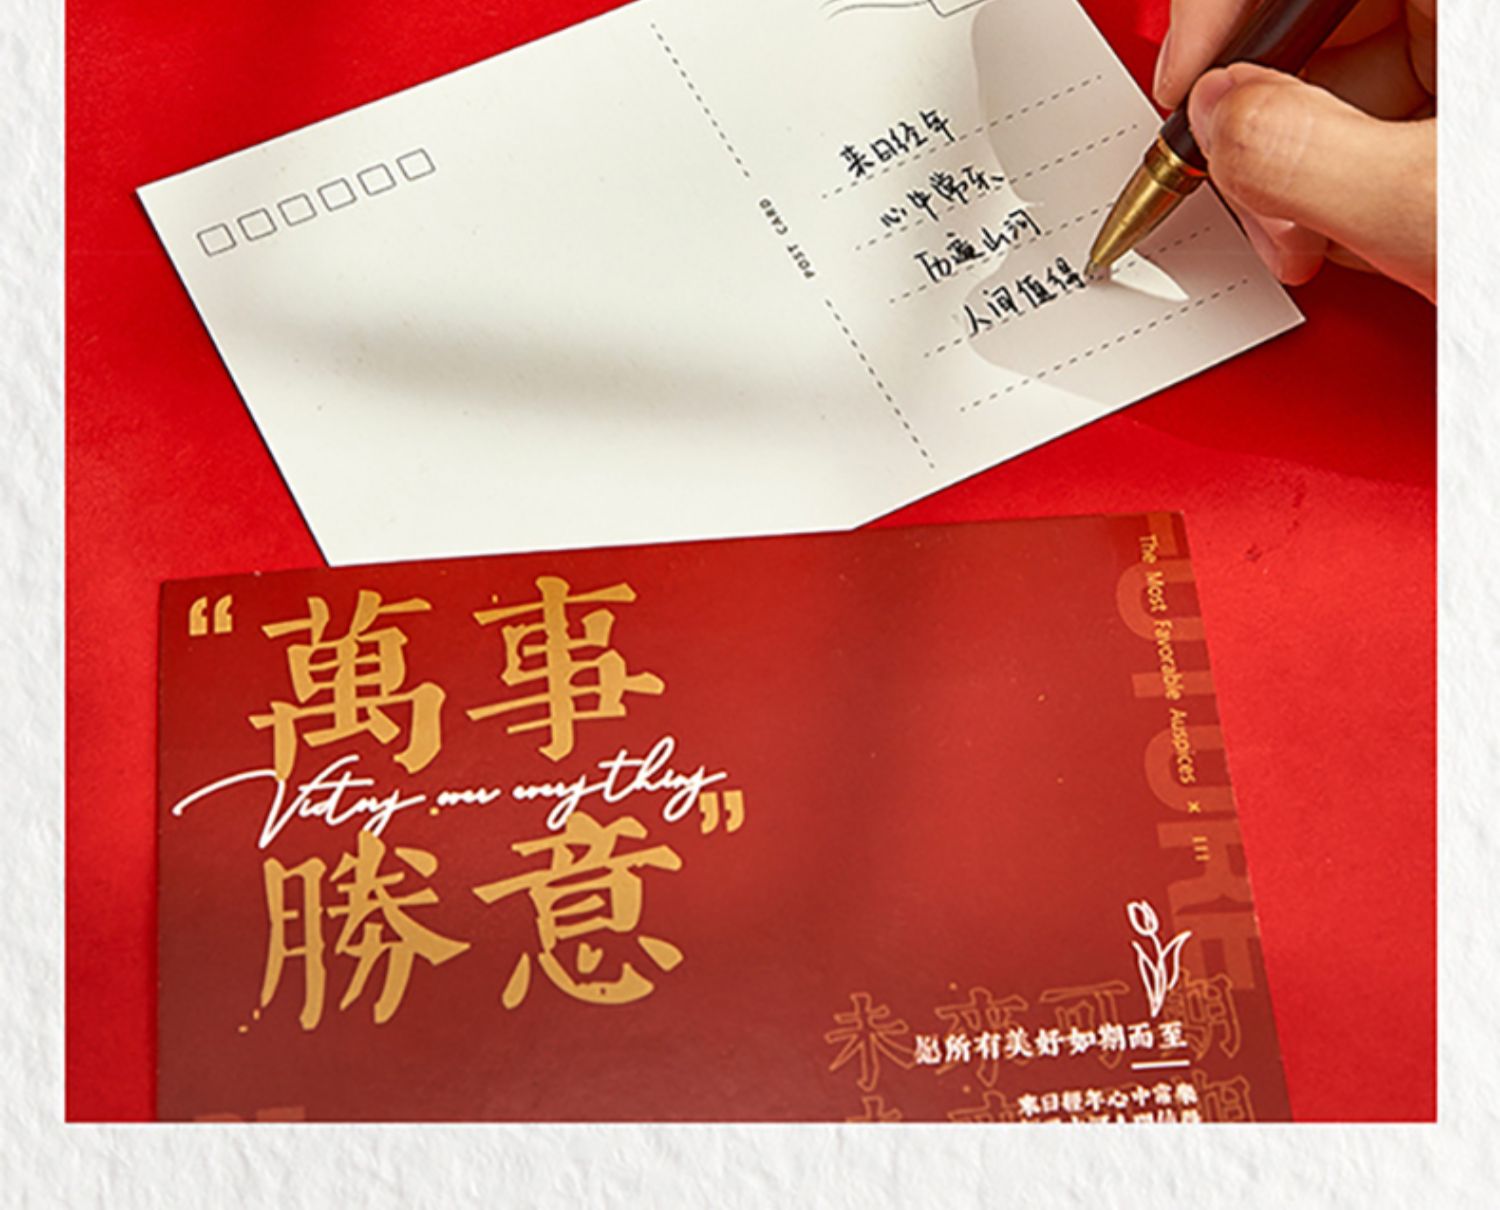 POST CARD
来日经年
心中常乐
历遍山河
人间值得
“萬事
Victory over everything
勝意”
The Most Favorable Auspices ×
FUTURE
未来可期
愿所有美好如期而至
來日經年心中常樂